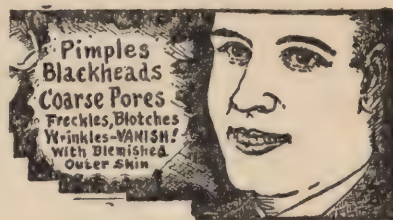 Pimples
Blackheads
Coarse Pores
Freckles, Blotches
Wrinkles-VANISH!
With Blemished
Outer Skin